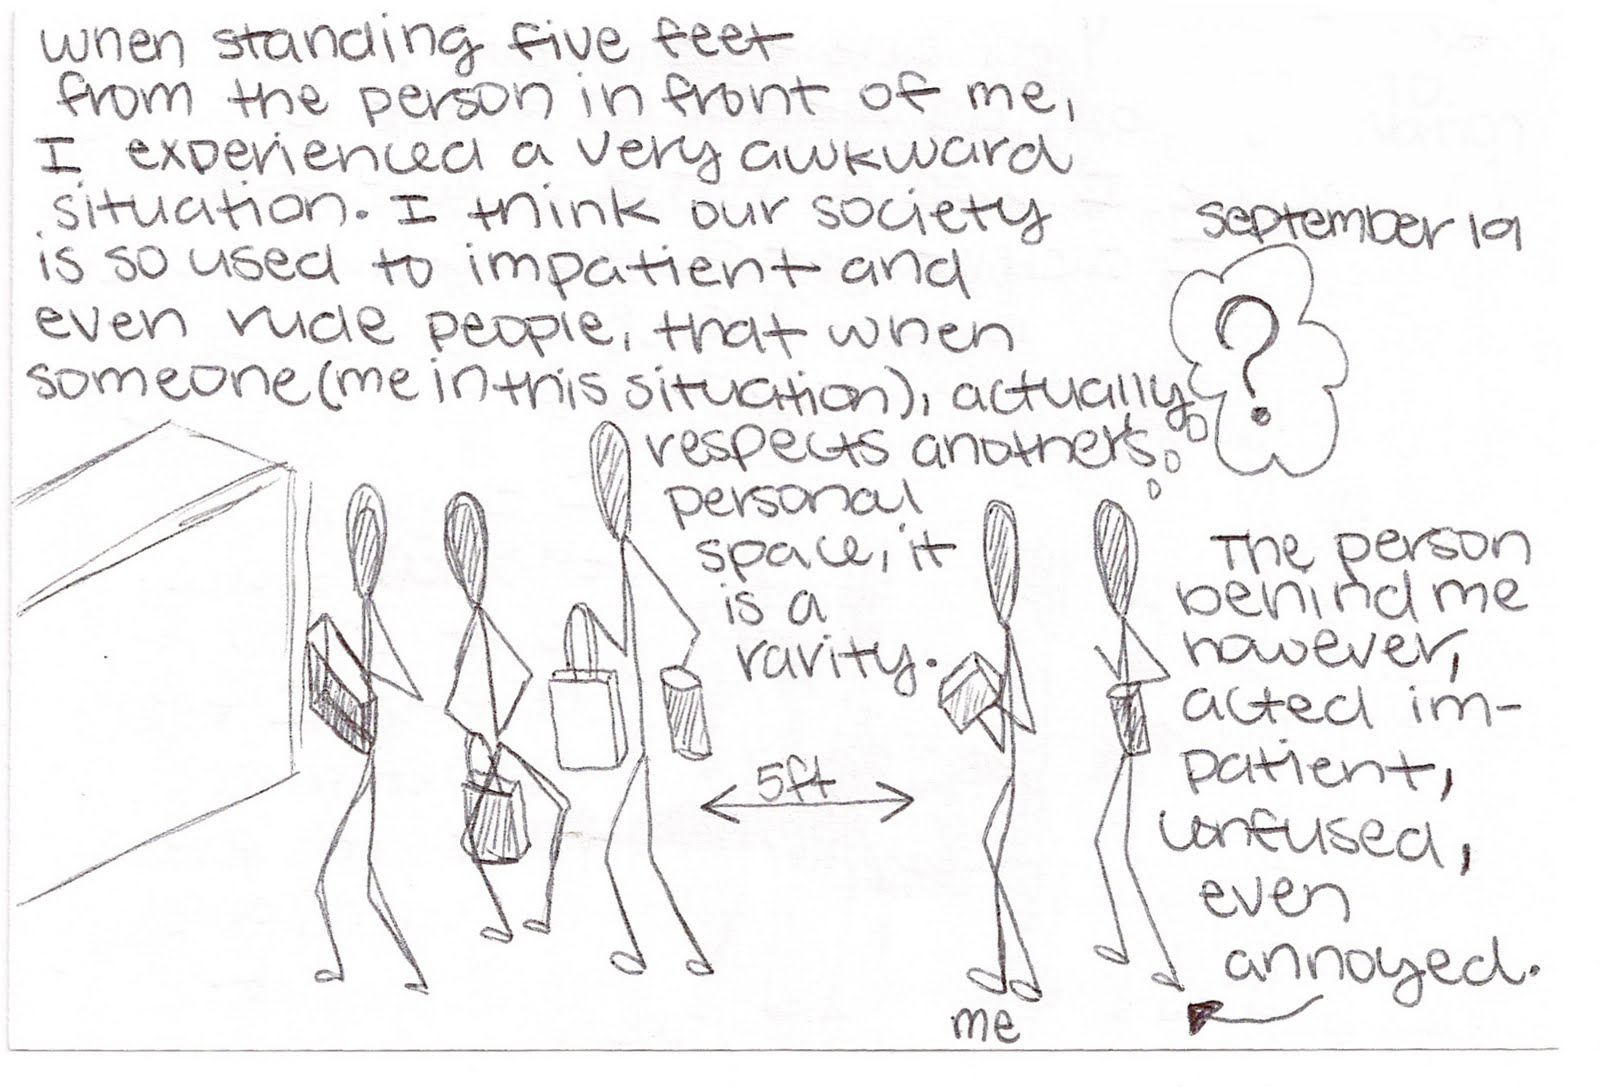 when standing five feet
from the person in front of me,
I experienced a very awkward
situation. I think our society
is so used to impatient and
even rude people, that when
someone (me in this situation), actually
respects anothers
personal
space, it
is a
rarity.
September 19
?
The person
behind me
however,
acted im-
patient,
confused,
even
annoyed.
5ft
me